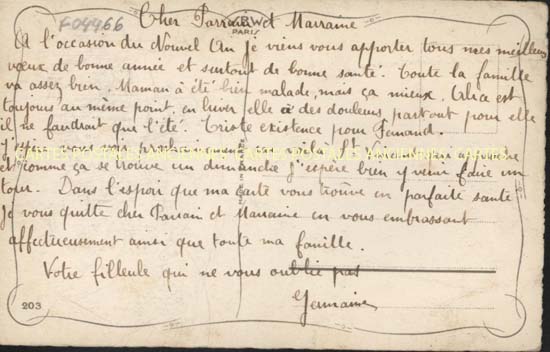 F04466
Cher Parrain et Marraine
PARIS
A l'occasion du Nouvel An je viens vous apporter tous mes meilleurs
vœux de bonne année et surtout de bonne santé. Toute la famille
va assez bien. Maman a été bien malade, mais ça mieux. Alice est
toujours au même point, en hiver elle a des douleurs partout pour elle
il ne faudrait que l'été. Triste existence pour Fernand.
J'espère vous voir prochainement, en voila St
CARTES POSTALES ANCIENNES
et comme ça se trouve un dimanche j'espère bien y venir faire un
tour. Dans l'espoir que ma carte vous trouve en parfaite santé
Je vous quitte cher Parrain et Marraine en vous embrassant
affectueusement ainsi que toute ma famille.
Votre filleule qui ne vous oublie pas
203
Germaine